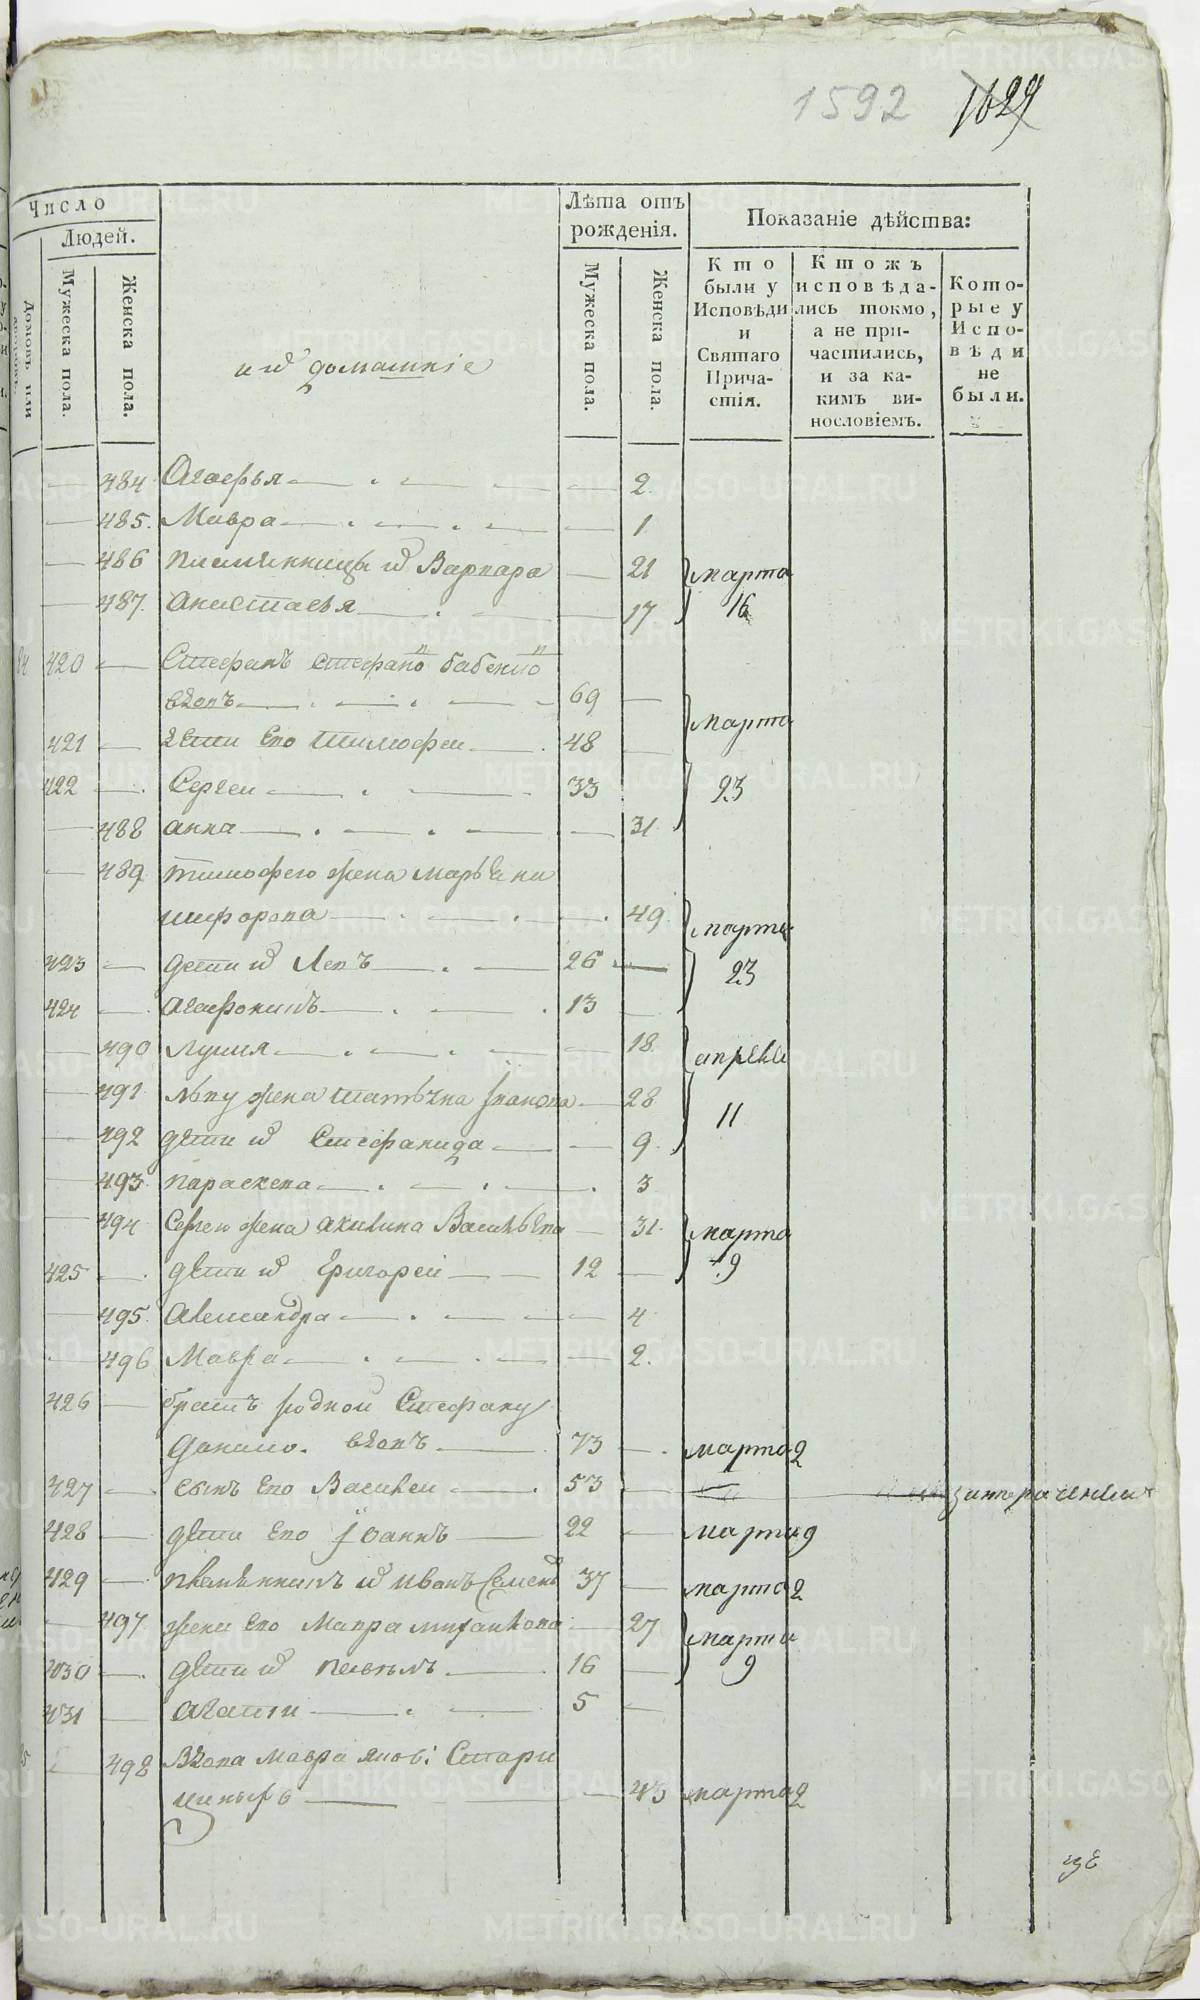 1592 1624
Число
Людей.
Лѣта отъ рожденія.
Показаніе дѣйства:
Домовъ или
Мужеска пола.
Женска пола.
и иⷯ домашніе
Мужеска пола.
Женска пола.
Кто были у Исповѣди и Святаго Причастія.
Ктожъ исповѣдались токмо, а не причастились, и за какимъ винословіемъ.
Которые у Исповѣди не были.
484 Агафья 2
485. Мавра 1
486 племянницы иⷯ Варвара 21 марта
487. Анастасья 17 16
420 Стефанъ Стефаноⷡ бабскиⷯ
вдовъ 69 марта
421 дѣти его Тимофеи 48
422 Сергеи 33 23
488 анна 31
489 тимофею жена марья ни
кифорова 49 марта
423 дети иⷯ Левъ 26 23
424 Агафоникъ 13
490 Лукия 18 апреля
491 льву жена татьяна Иванова 28 11
492 дети иⷯ Стефанида 9
493 параскева 3
494 Сергею жена акилина Васильева 31 марта
425 дети иⷯ Григореи 12 9
495 Александра 4
496 Мавра 2.
426 братъ родной Стефану
Данило. вдовъ 73 марта 2
427 сынъ его Василеи 53
428 дети его Іоаннъ 22 марта 9
429 племянникъ иⷯ иванъ Семеноⷡ 37 марта 2
497 жена его Мавра михаилова 27 марта
430 дети иⷯ 16 9
431 5
498 Вдова мавра яков: Стари
циныхъ 43 марта 2